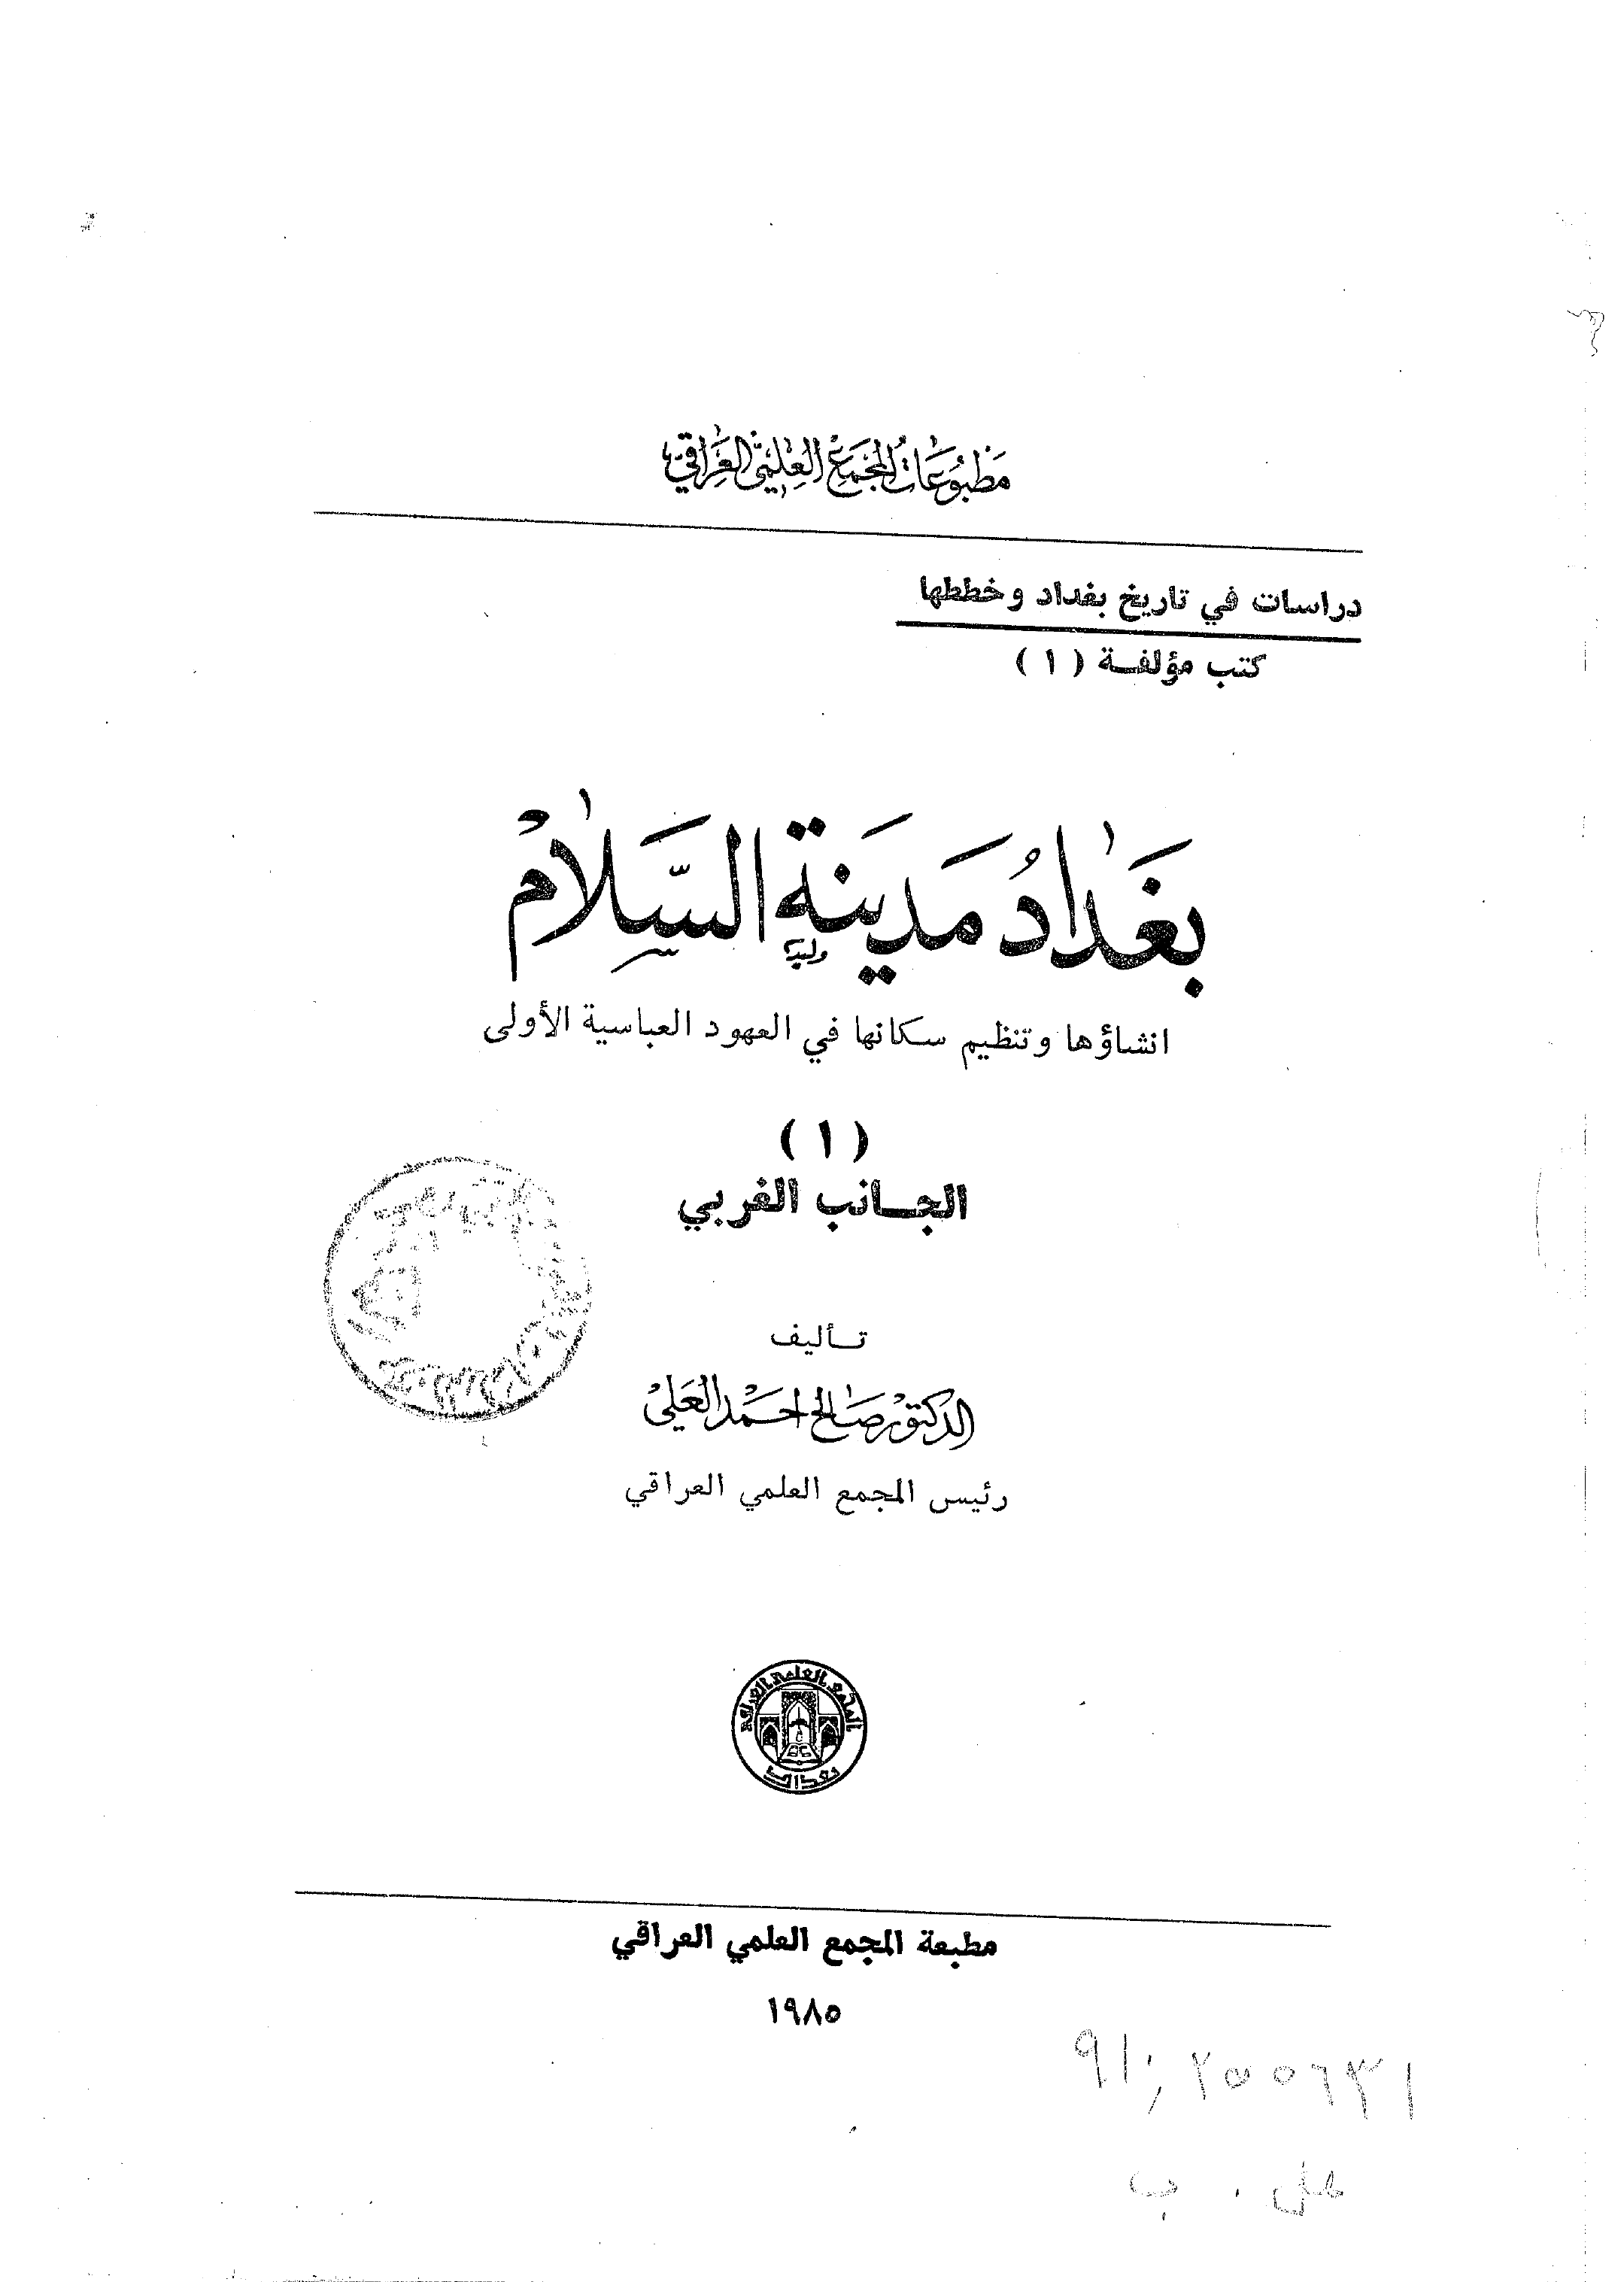 مطبوعات المجمع العلمي العراقي
دراسات في تاريخ بغداد وخططها
كتب مؤلفة (١)
بَغدَادُ مَدينَة السَّلَام
وليد
انشاؤها وتنظيم سكانها في العهود العباسية الأولى
(١)
الجانب الغربي
تأليف
الدكتور صالح احمد العلي
رئيس المجمع العلمي العراقي
المجمع العلمي العراقي
بغداد
مطبعة المجمع العلمي العراقي
١٩٨٥